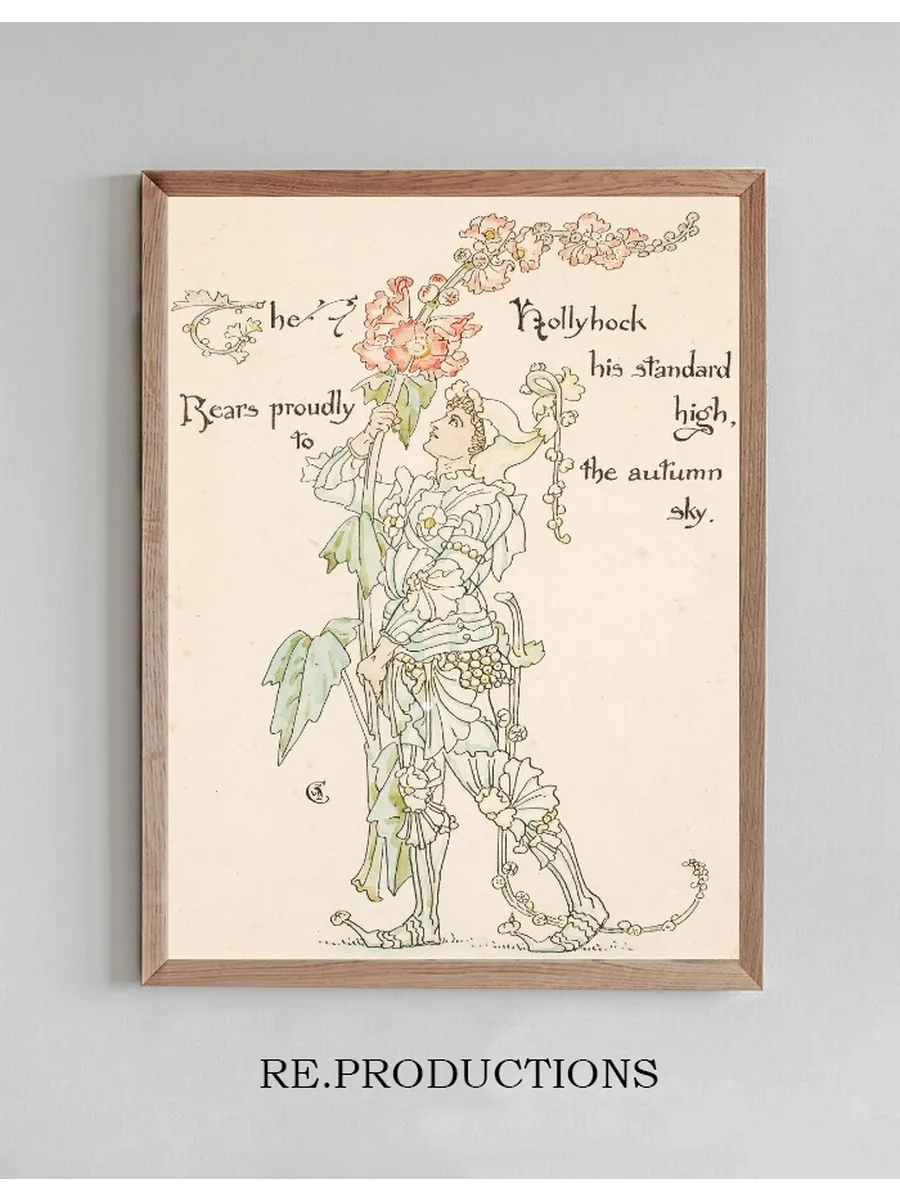 The Hollyhock
his standard
high,
Rears proudly
to
the autumn
sky.
RE.PRODUCTIONS